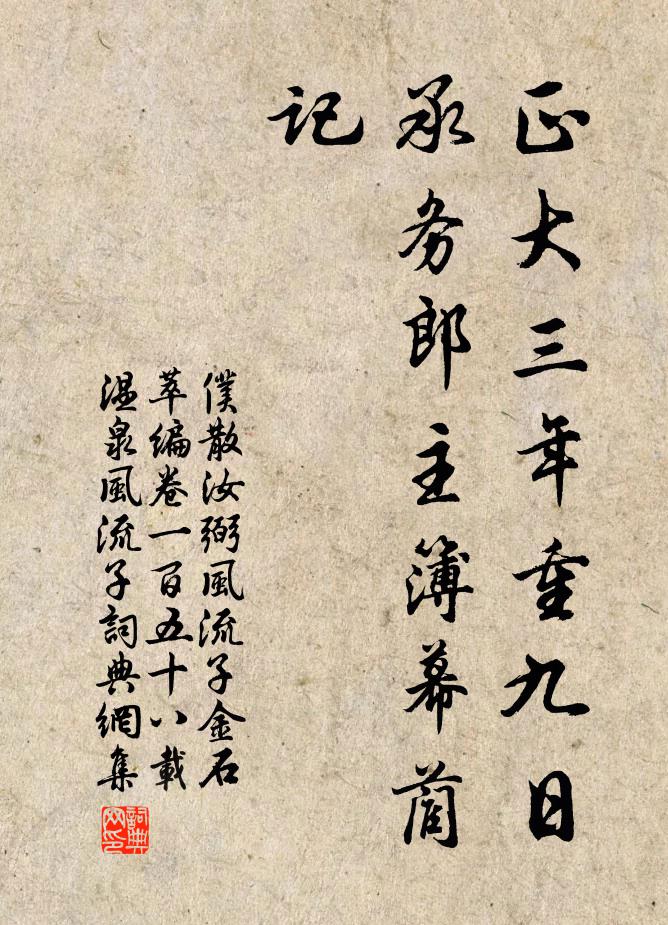 正大三年重九日
承务郎主簿幕蔺
记
僕散汝弼風流子金石
萃编卷一百五十八載
温泉風流子詞典網集
詞典网印